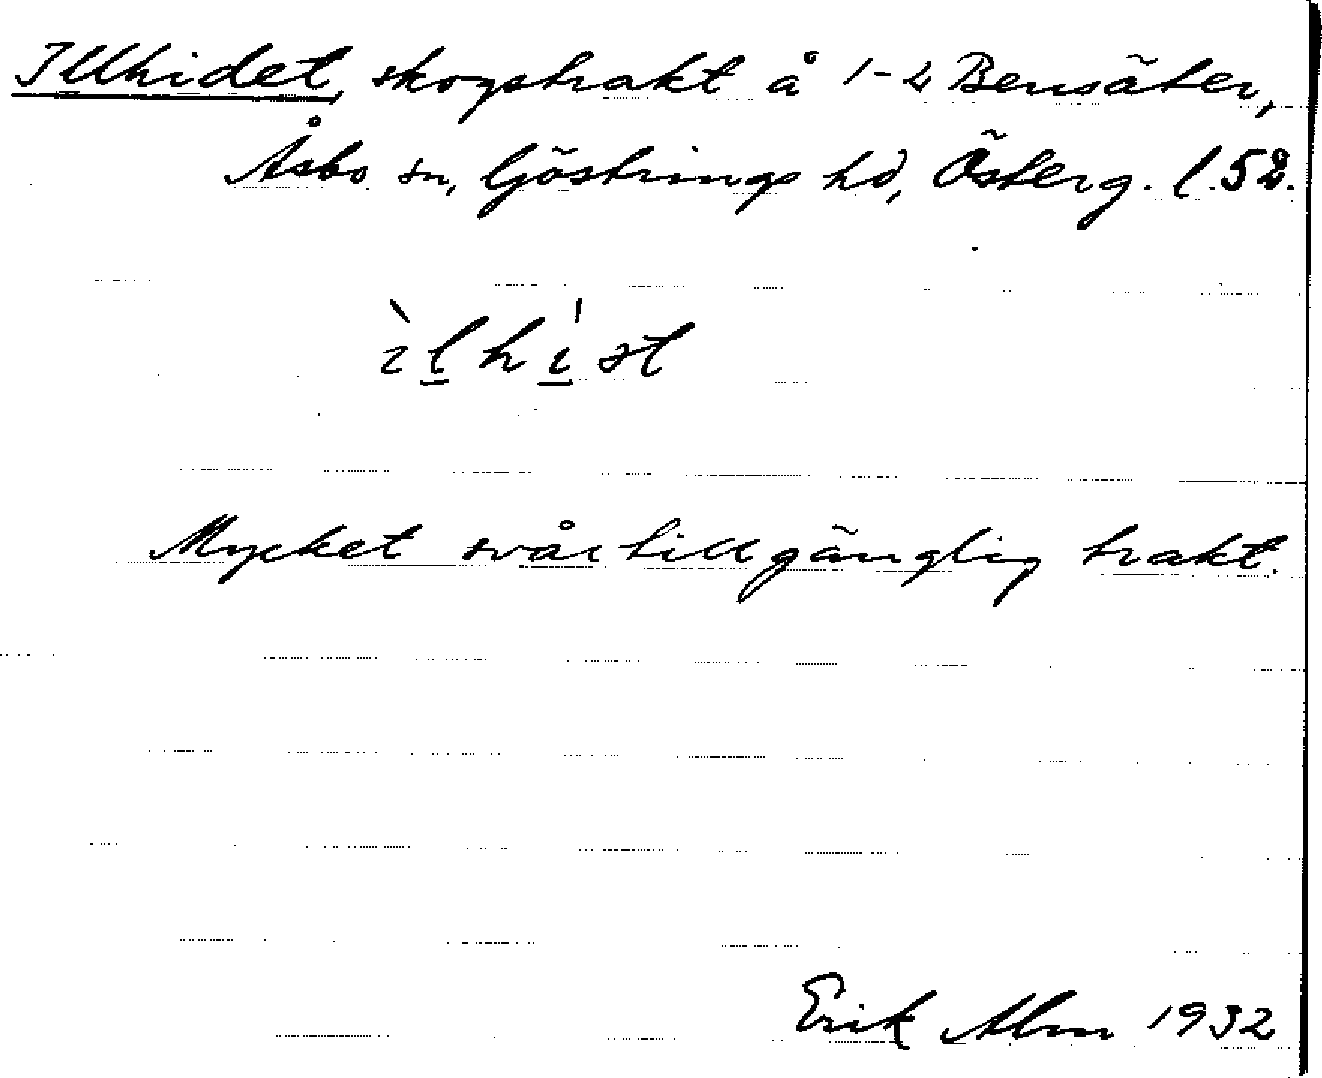 Illhidet, skogstrakt å 1-2 Bensäter,
Åsbo sn, Göstrings hd, Österg. l. 52.
ìlhi̱'ət
Mycket svårtillgänglig trakt.
Erik Alm 1932